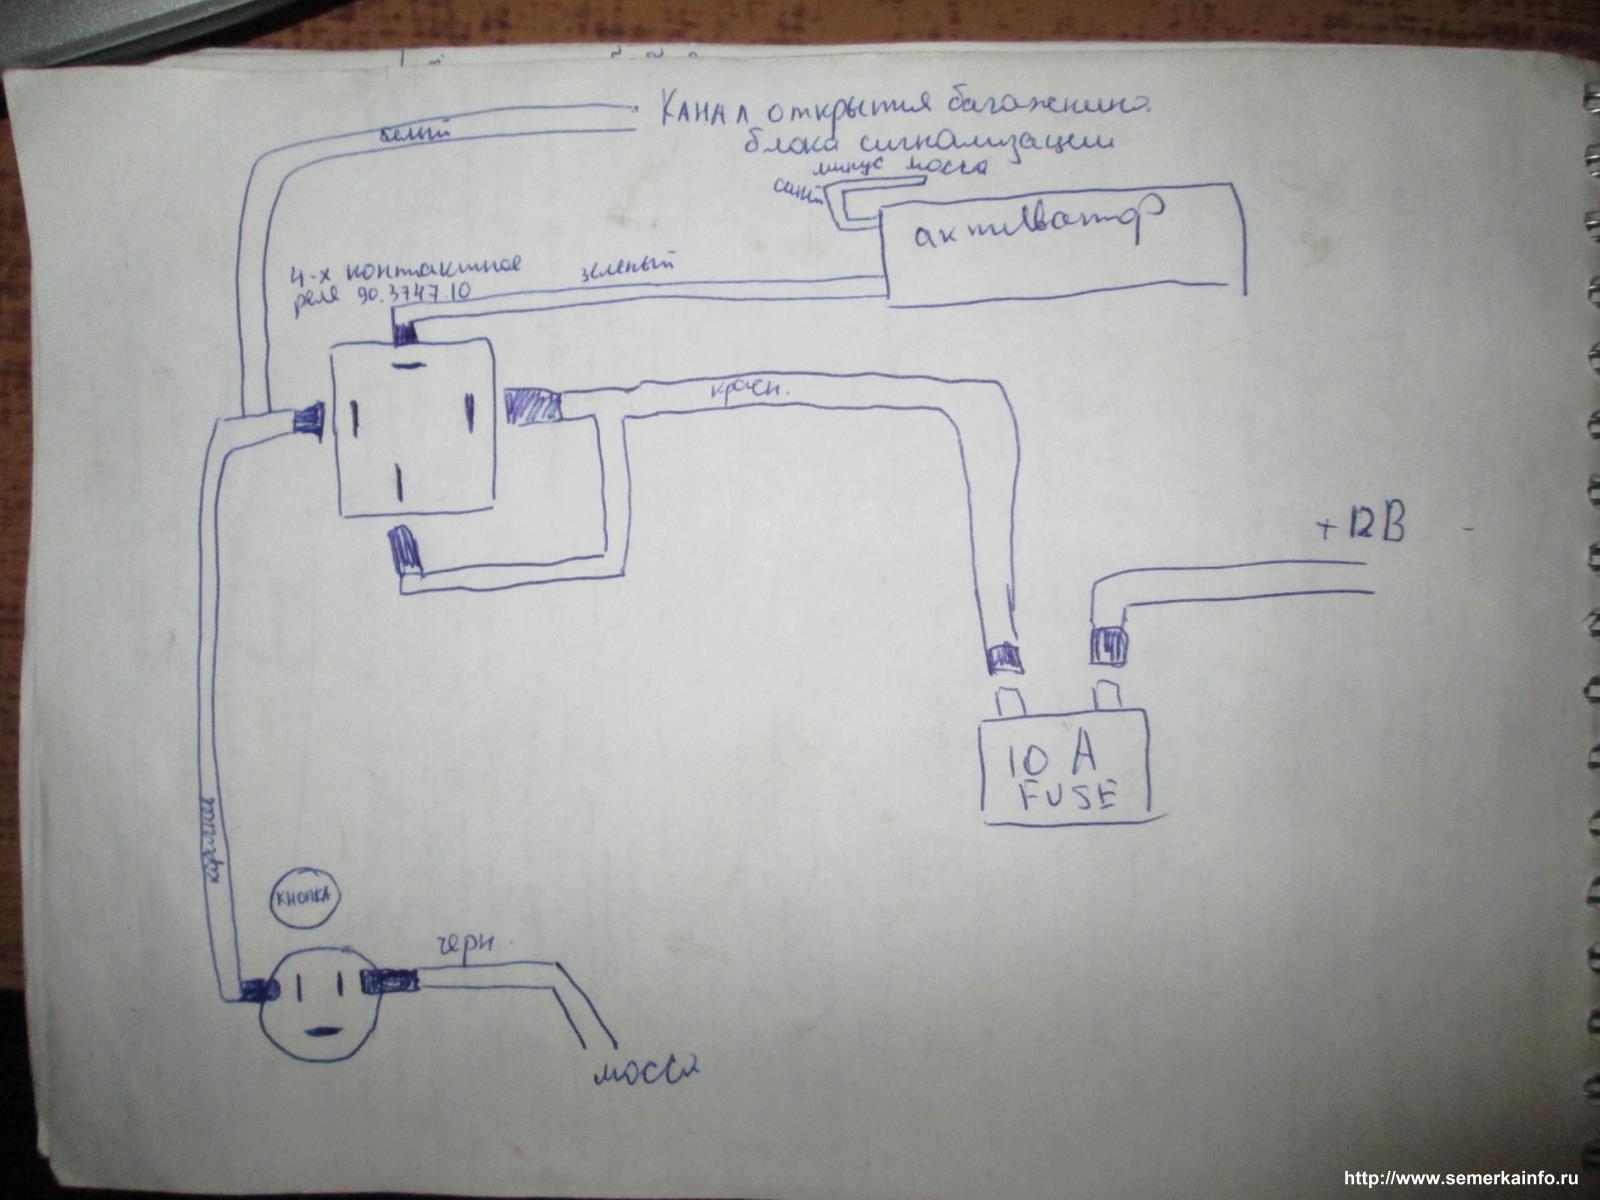 Канал открытия багажника
блока сигнализации
белый
минус масса
синий
активатор
4-х контактное
реле 90.3747.10
зеленый
красн.
+12В
10 А
FUSE
коричнев
КНОПКА
черн.
масса
http://www.semerkainfo.ru